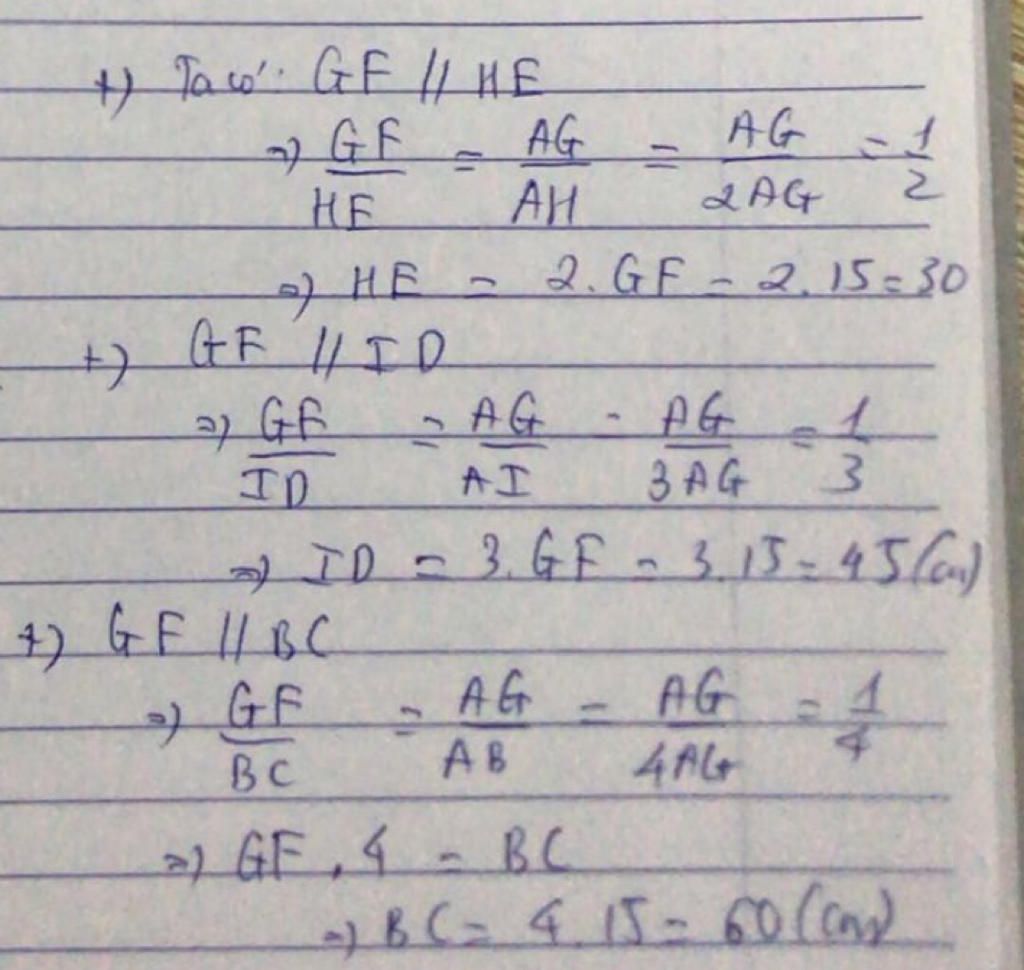 +) Ta có: GF // HE
=> GF/HE = AG/AH = AG/2AG = 1/2
=> HE = 2.GF = 2.15=30
+) GF // ID
=> GF/ID = AG/AI = AG/3AG = 1/3
=> ID = 3.GF = 3.15 = 45(cm)
+) GF // BC
=> GF/BC = AG/AB = AG/4AG = 1/4
=> GF . 4 = BC
=> BC = 4.15 = 60(cm)